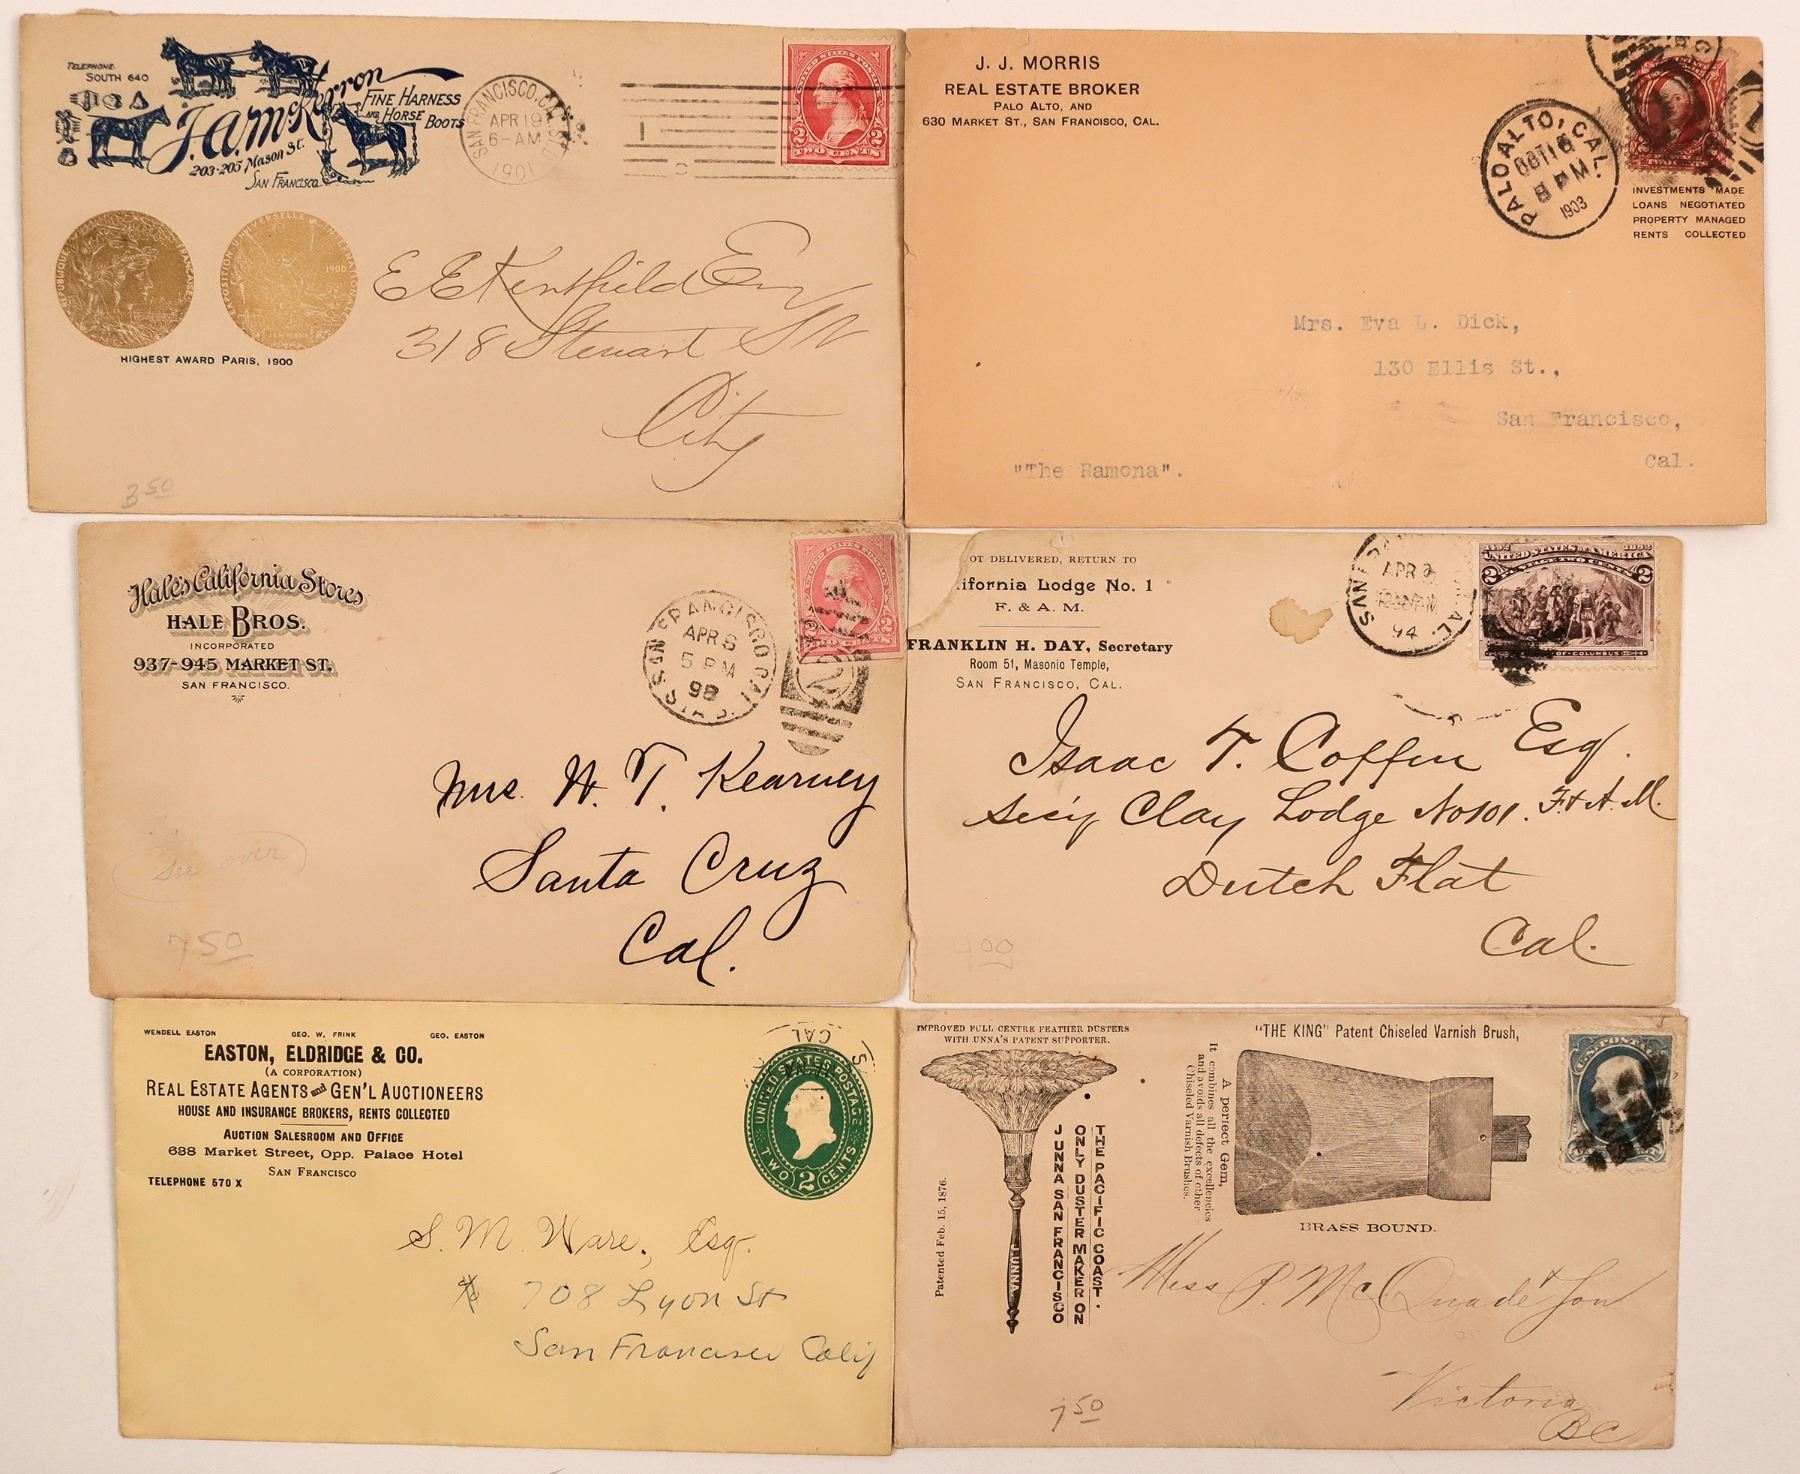 TELEPHONE
SOUTH 640
J.A. McKerron
FINE HARNESS
AND HORSE BOOTS
203-205 Mason St.
SAN FRANCISCO
SAN FRANCISCO, CAL.
APR 19
6-AM
1901
UNITED STATES POSTAGE
2 2
TWO CENTS
REPUBLIQUE FRANÇAISE
EXPOSITION UNIVERSELLE INTERNATIONALE
1900
HIGHEST AWARD PARIS, 1900
E E Kentfield Esq
318 Steuart St
City
3 50
J. J. MORRIS
REAL ESTATE BROKER
PALO ALTO, AND
630 MARKET ST., SAN FRANCISCO, CAL.
PALO ALTO, CAL.
OCT 16
8 PM
1903
INVESTMENTS MADE
LOANS NEGOTIATED
PROPERTY MANAGED
RENTS COLLECTED
Mrs. Eva L. Dick,
130 Ellis St.,
San Francisco,
Cal.
"The Ramona".
Hale's California Stores
HALE BROS.
INCORPORATED
937-945 MARKET ST.
SAN FRANCISCO.
SAN FRANCISCO CAL
APR 8
5 PM
98
UNITED STATES POSTAGE
TWO CENTS
2
Mrs. W. T. Kearney
Santa Cruz
Cal.
See over
7 50
OT DELIVERED, RETURN TO
ifornia Lodge No. 1
F. & A. M.
FRANKLIN H. DAY, Secretary
Room 51, Masonic Temple,
SAN FRANCISCO, CAL.
SAN F CAL.
APR
94
1492 1892
UNITED STATES OF AMERICA
2 POSTAGE TWO CENTS 2
OF COLUMBUS
Isaac T. Coffin Esq.
Sec'y Clay Lodge No 101. F. & A. M.
Dutch Flat
Cal.
4 00
WENDELL EASTON GEO. W. FRINK GEO. EASTON
EASTON, ELDRIDGE & CO.
(A CORPORATION)
REAL ESTATE AGENTS and GEN'L AUCTIONEERS
HOUSE AND INSURANCE BROKERS, RENTS COLLECTED
AUCTION SALESROOM AND OFFICE
638 Market Street, Opp. Palace Hotel
SAN FRANCISCO
TELEPHONE 570 X
CAL
UNITED STATES POSTAGE
TWO 2 CENTS
S. M. Ware, Esq.
708 Lyon St
San Francisco Calif
IMPROVED FULL CENTRE FEATHER DUSTERS
WITH UNNA'S PATENT SUPPORTER.
Patented Feb. 15, 1876.
J. UNNA
THE PACIFIC COAST.
ONLY DUSTER MAKER ON
J UNNA SAN FRANCISCO
"THE KING" Patent Chiseled Varnish Brush,
A perfect Gem,
It combines all the excellencies
and avoids all defects of other
Chiseled Varnish Brushes.
BRASS BOUND.
U.S. POSTAGE
Mess P. McQuade & Son
Victoria
BC
7 50